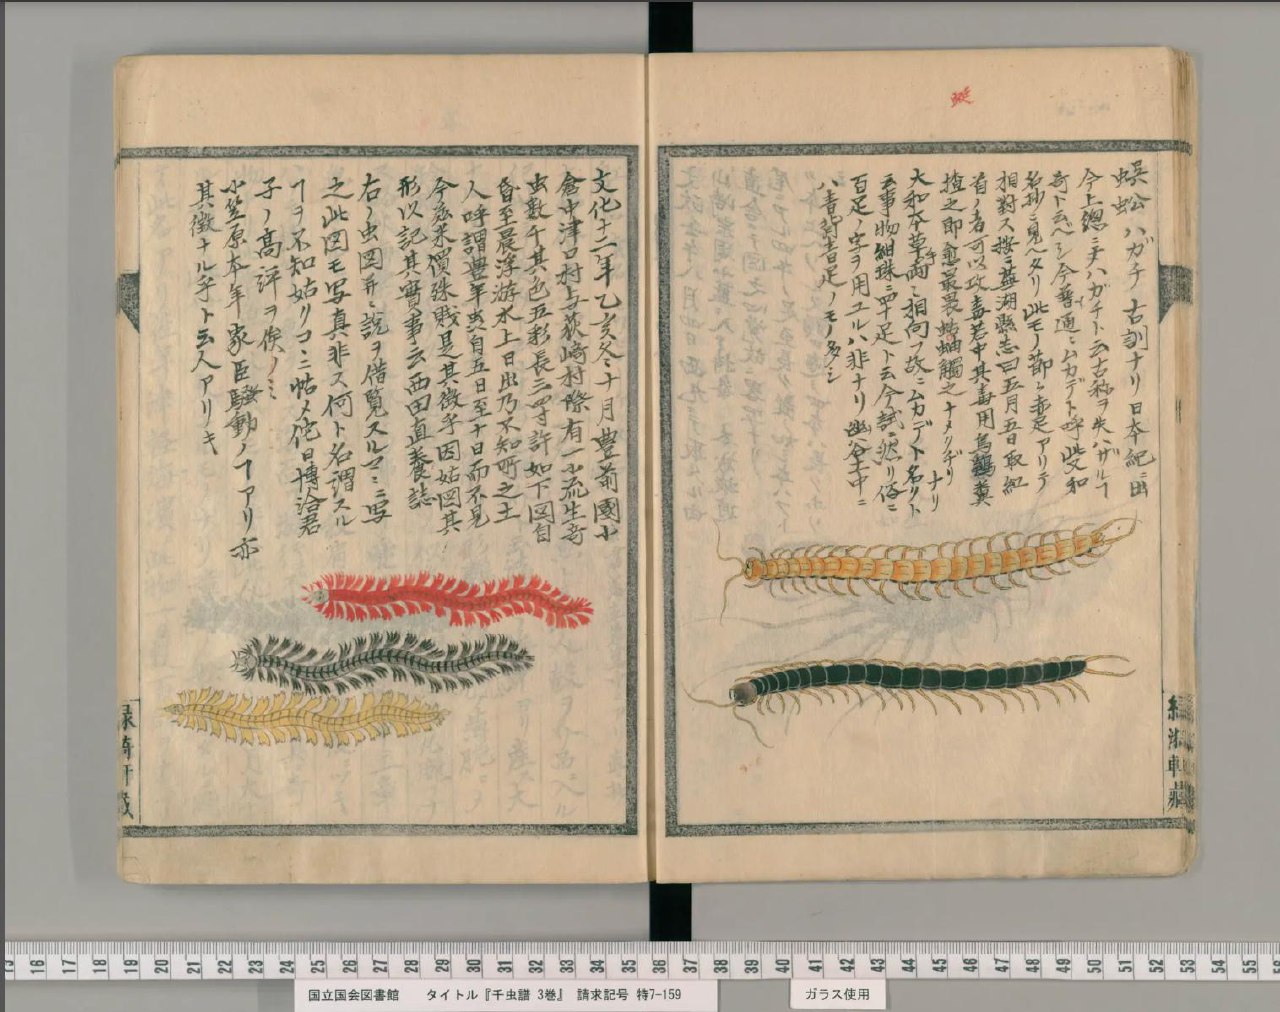 蜈蚣 ハガチ 古訓ナリ日本紀ニ出
今上總ニテハガチト云古称ヲ失ハザルヿ
奇ト云ベシ今普通ニムカデト呼此父和
名抄ニ見ヘタリ此モノ節々ニ赤足アリテ
相對ス按ニ蕪湖縣志曰五月五日取紅
者可以攻毒若中其毒用烏鶏糞
搽之即愈最畏蛞蝓觸之ナメクヂリ ナリ
大和本草ニ両々相向フ故ニムカデト名クト
云事物紺珠ニ四十足ト云今試ニ然リ俗ニ
百足ノ字ヲ用ユルハ非ナリ幽谷土中ニ
ハ青背青足ノモノ多シ
文化十二年乙亥冬十月豊前國小
倉中津口村与荻﨑村際有一小流生奇
虫數千其色五彩長三四寸許如下図自
昏至晨浮游水上日出乃不知所之土
人呼謂豊年虫自五日至十日而不見
今茲米價殊賎是其徴乎因姑図其
形以記其實事云西田直養誌
右ノ虫図并ニ説ヲ借覧スルマヽニ写
之此図モ写真非ス何ト名謂スル
ヿヲ不知姑リコヽニ帖〆他日博洽君
子ノ高評ヲ俟ノミ
小笠原本年家臣騒動ノヿアリ亦
其徴ナル乎ト云人アリキ
13 16 17 18 19 20 21 22 23 24 25 26 27 28 29 30 31 32 33 34 35 36 37 38 39 40 41 42 43 44 45 46 47 48 49 50 51 52 53 54 55 56
国立国会図書館 タイトル『千虫譜 3巻』 請求記号 特7-159
ガラス使用